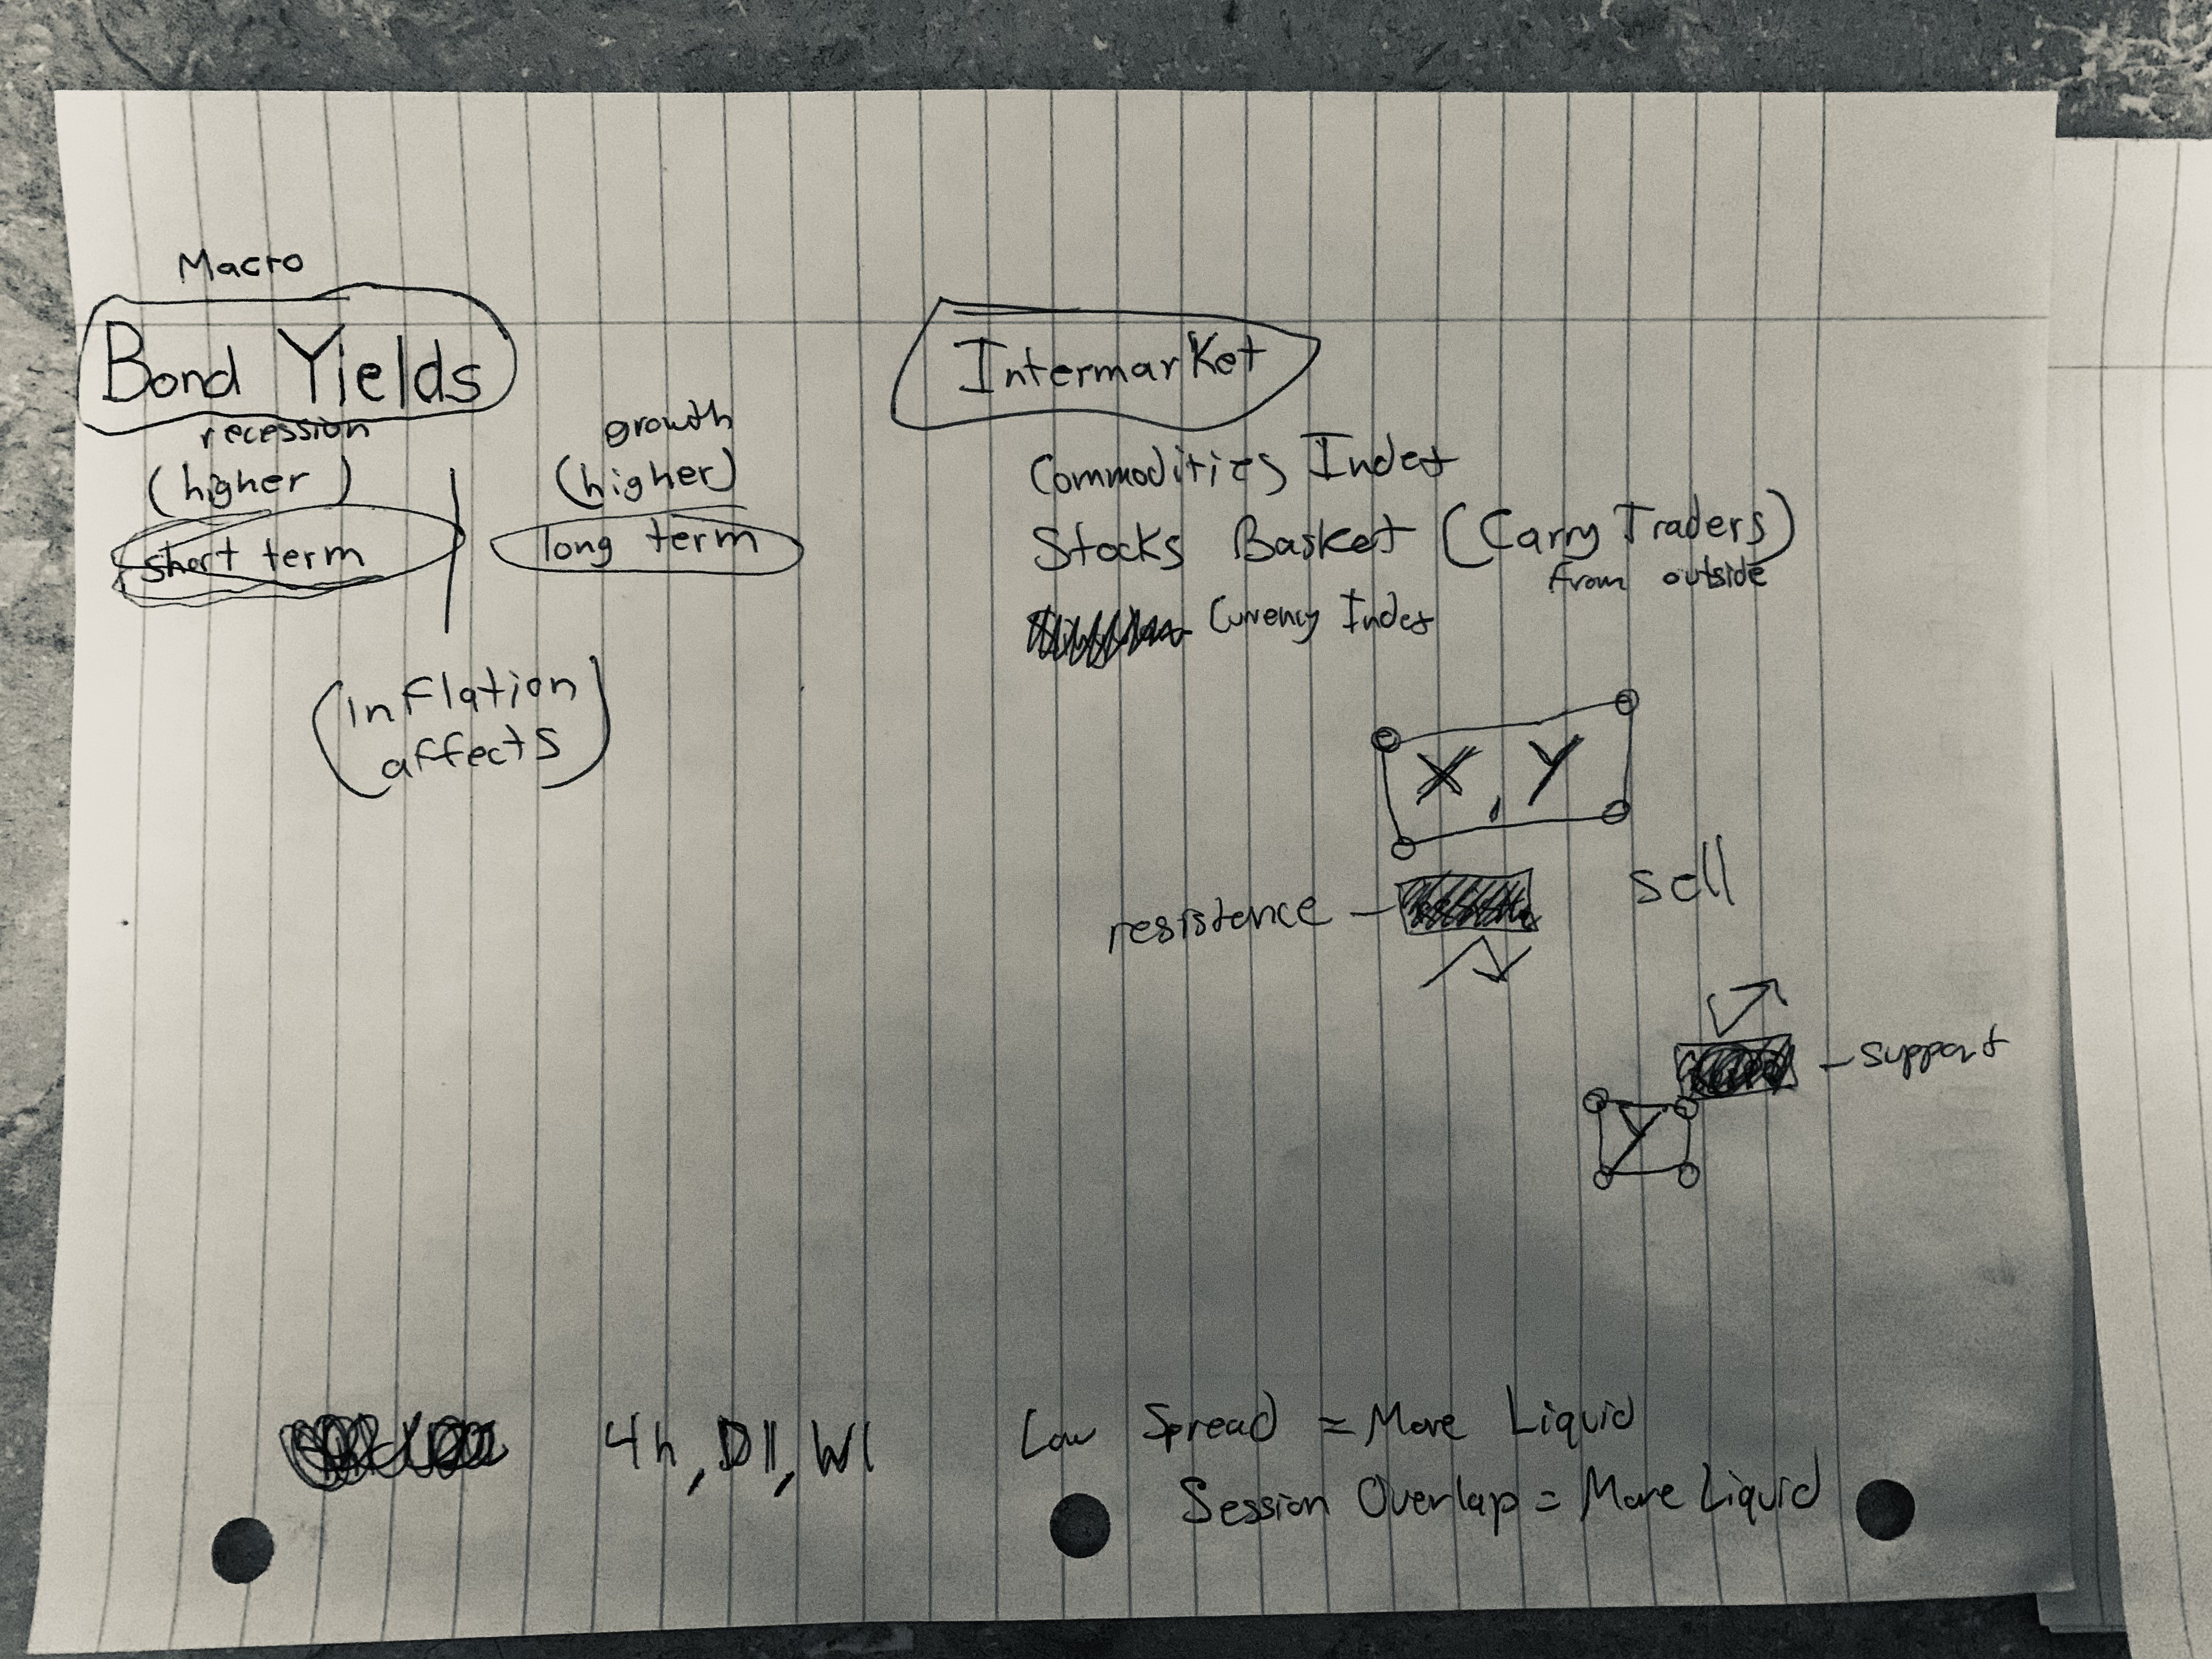 Macro
Bond Yields
recession
(higher)
short term
growth
(higher)
long term
(inflation
affects)
Intermarket
Commodities Index
Stocks Basket (Carry Traders)
from outside
Currency Index
X, Y
resistence -
sell
- support
Y
4h, D1, W1
Low Spread = More Liquid
Session Overlap = More Liquid